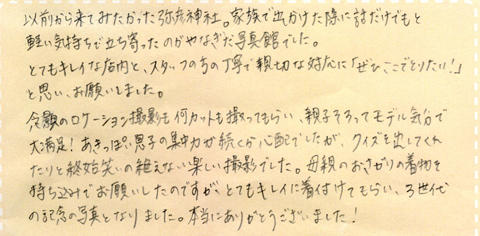 以前から来てみたかった弥彦神社。家族で出かけた際に話だけでもと
軽い気持ちで立ち寄ったのがやなぎだ写真館でした。
とてもキレイな店内と、スタッフの方の丁寧で親切な対応に「ぜひここでとりたい!」
と思い、お願いしました。
念願のロケーション撮影も何カットも撮ってもらい、親子そろってモデル気分で
大満足!あきっぽい息子の集中力が続くか心配でしたが、クイズを出してくれ
たりと終始笑いの絶えない楽しい撮影でした。母親のおさがりの着物を
持ち込みでお願いしたのですが、とてもキレイに着付けてもらい、3世代
の記念の写真となりました。本当にありがとうございました!